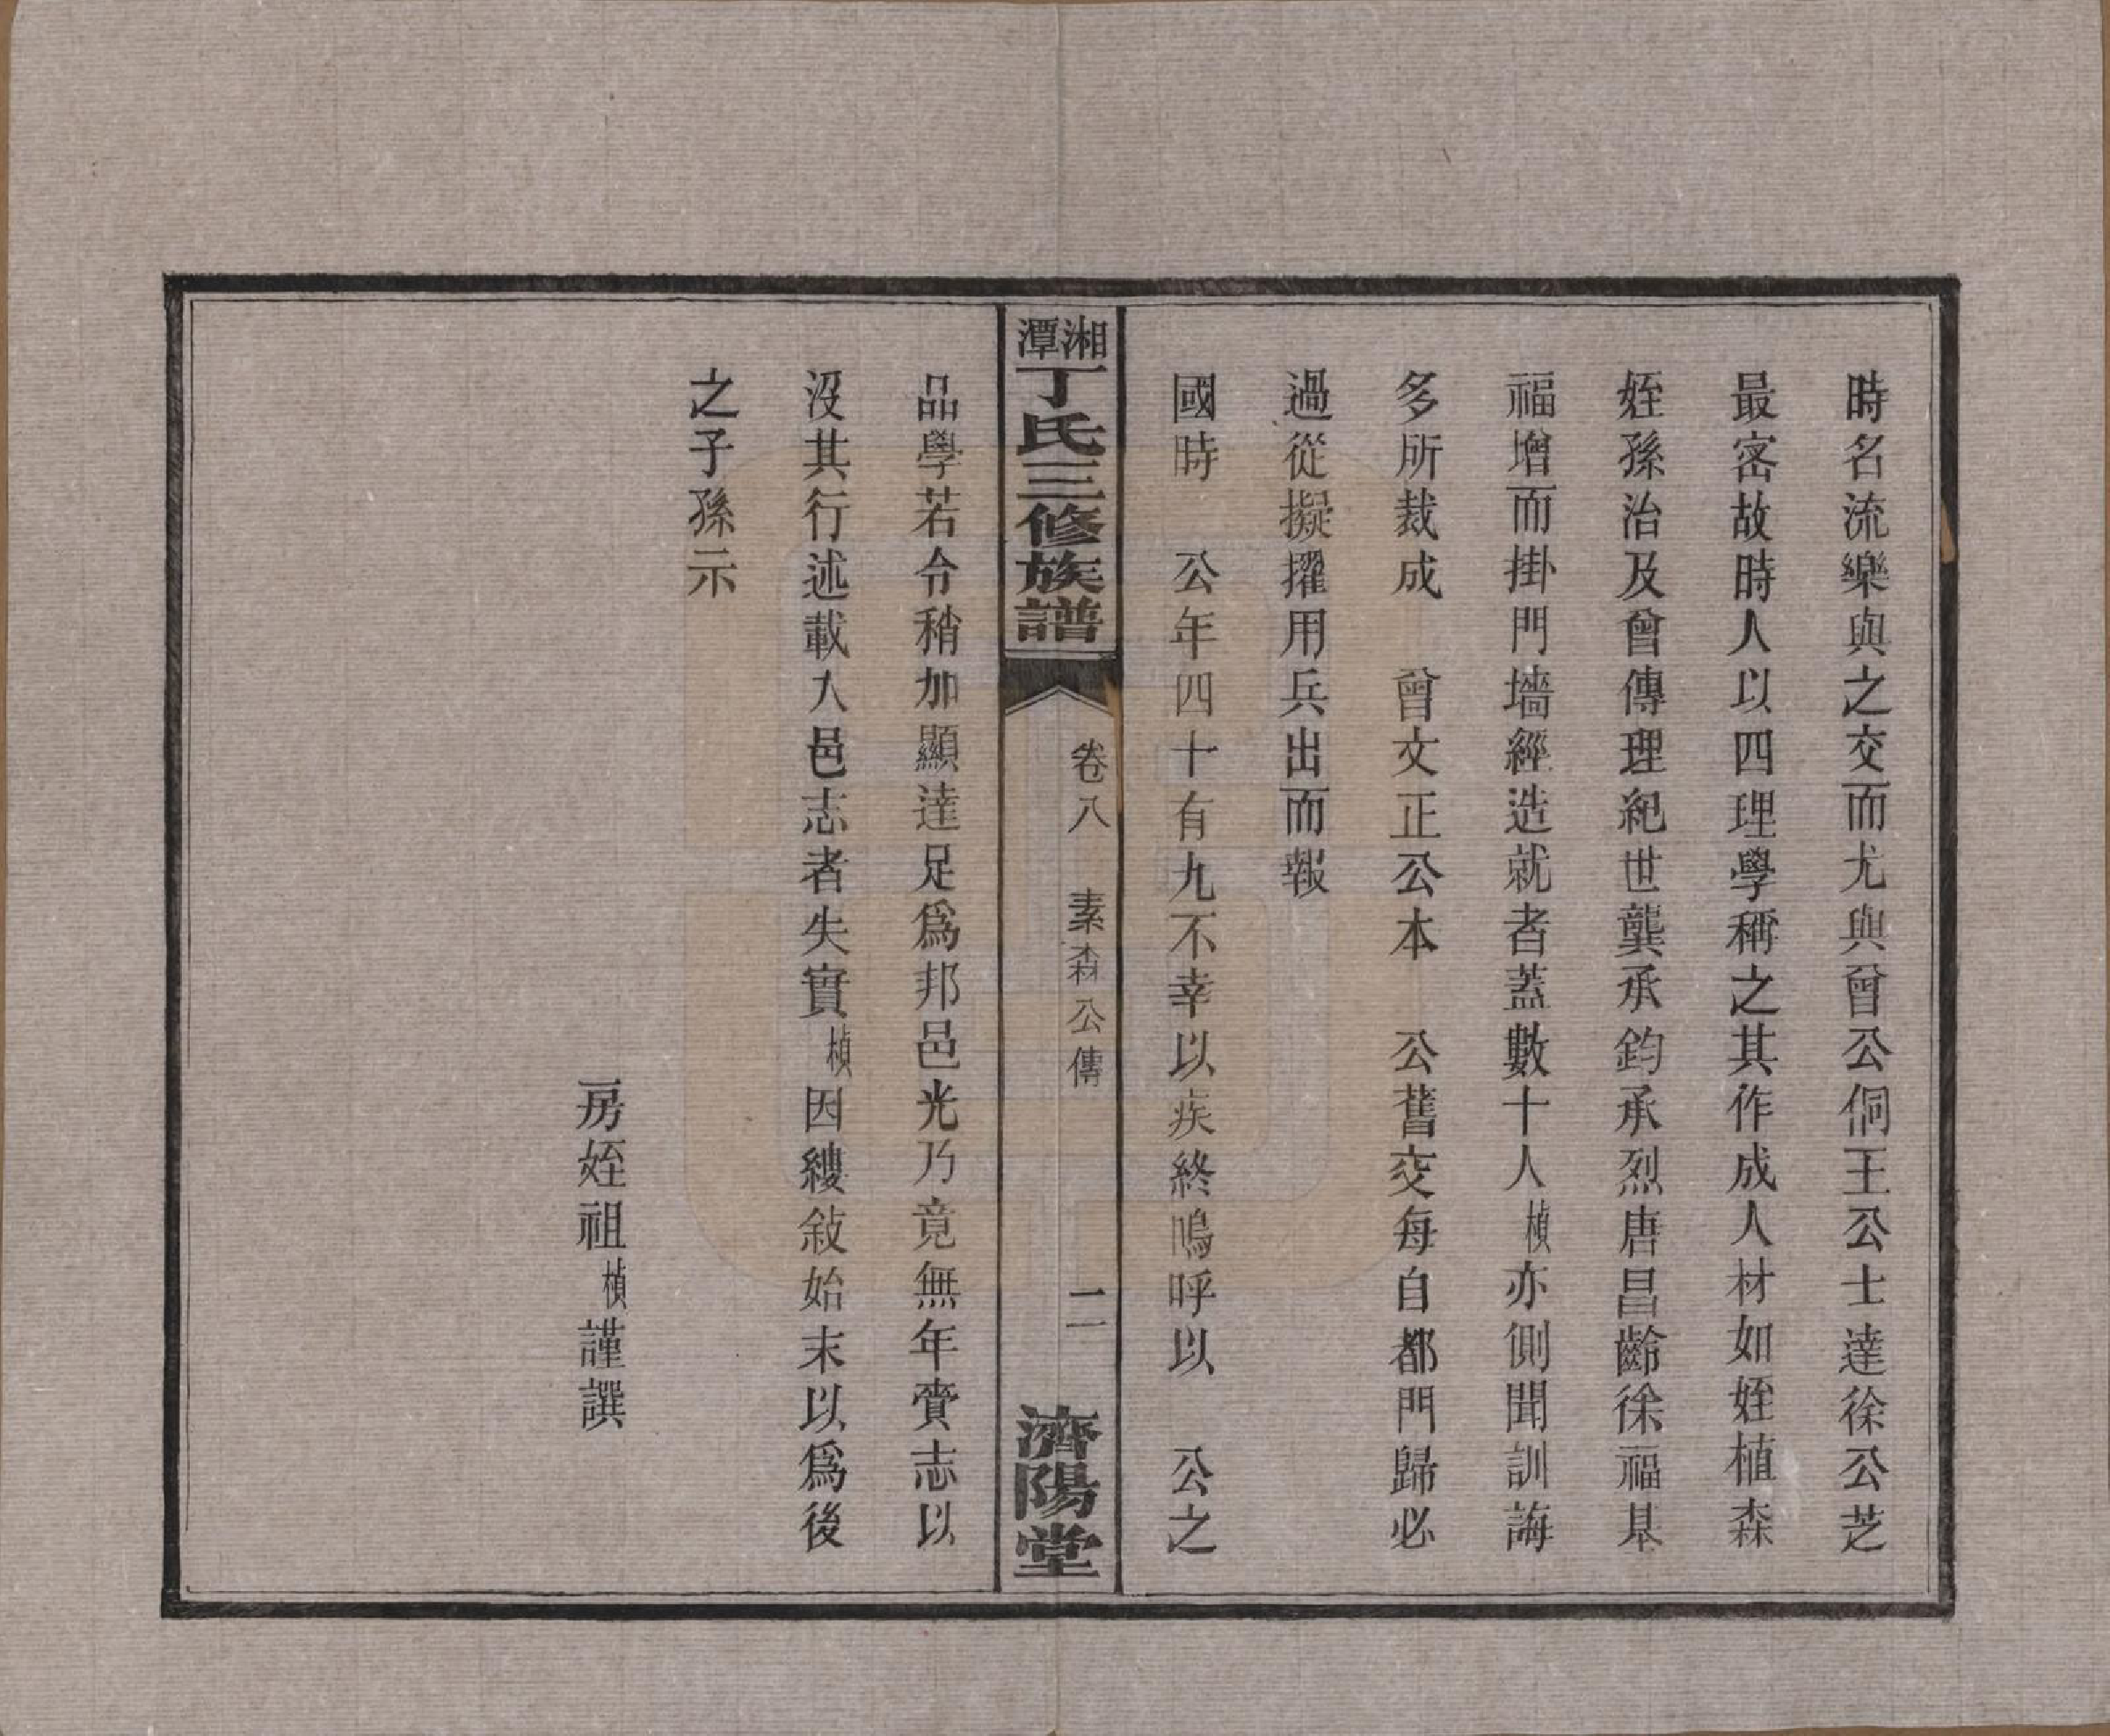 時名流樂與之交而尤與曾公侗王公士達徐公芝
最密故時人以四理學稱之其作成人材如姪植森
姪孫治及曾傳理紀世龔承鈞承烈唐昌齡徐福基
福增而掛門墻經造就者蓋數十人楨亦側聞訓誨
多所裁成　曾文正公本　公舊交每自都門歸必
過從擬擢用兵出而報
國時　公年四十有九不幸以疾終嗚呼以　公之
湘潭丁氏三修族譜　卷八　素森公傳　二　濟陽堂
品學若令稍加顯達足爲邦邑光乃竟無年賫志以
沒其行述載入邑志者失實楨因縷敍始末以爲後
之子孫示
房姪祖楨謹譔